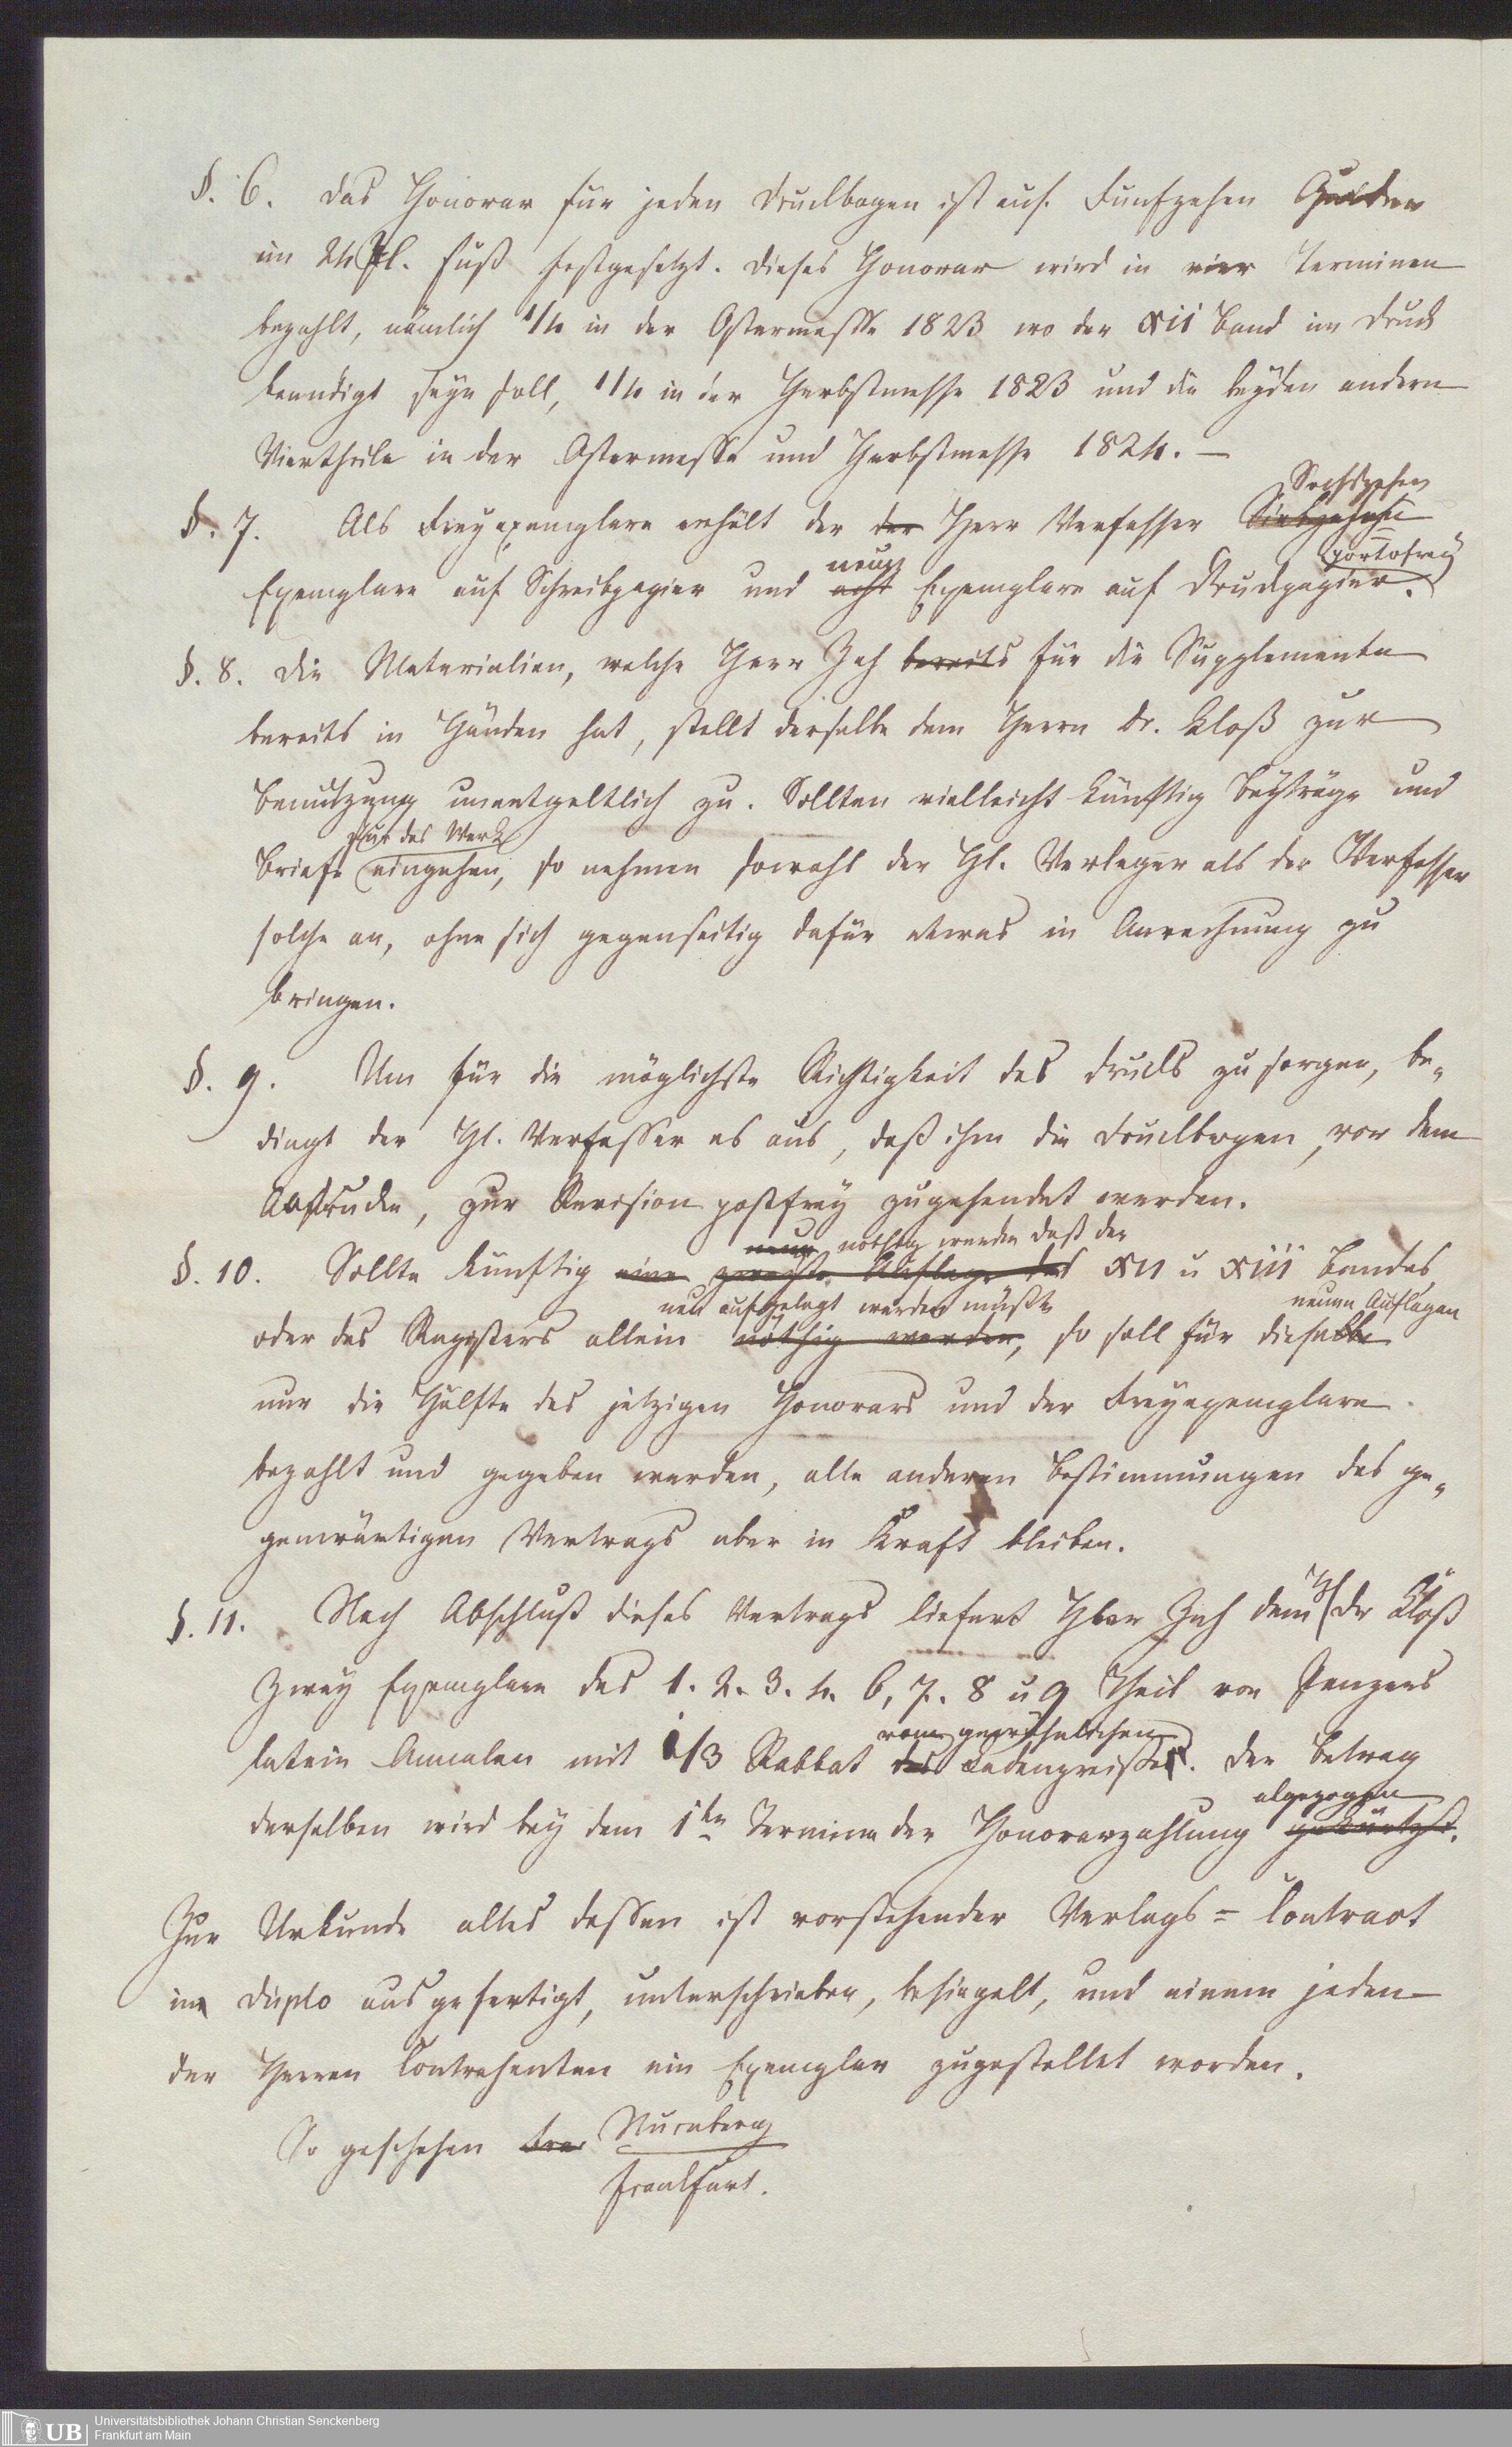 §. 6. Das Honorar für jeden Druckbogen ist auf Funfzehen Gulden
im 24 Fl. Fuß festgesetzt. Dieses Honorar wird in vier Terminen
bezahlt, nämlich 1/4 in der Ostermesse 1823 wo der XII Band im Druck
beendigt seyn soll, 1/4 in der Herbstmesse 1823 und die beyden andern
Viertheile in der Ostermesse und Herbstmesse 1824. —
Sechszehen
§. 7. Als Freyexemplare erhält der der Herr Verfasser
neun portofrey
Exemplare auf Schreibpapier und acht Exemplare auf Druckpapier.
§. 8. Die Materialien, welche Herr Zeh bereits für die Supplemente
bereits in Händen hat, stellt derselbe dem Herrn Dr. Kloß zur
Benutzung unentgeltlich zu. Sollten vielleicht künftig Beyträge und
für das Werk
Briefe eingehen, so nehmen sowohl der Hl. Verleger als der Verfasser
solche an, ohne sich gegenseitig dafür etwas in Anrechnung zu
bringen.
§. 9. Um für die möglichste Richtigkeit des Drucks zu sorgen, be„
dingt der Hl. Verfasser es aus, daß ihm die Druckbogen, vor dem
Abdrucke, zur Revision postfrey zugesendet werden.
neue nöthig werden daß der
§. 10. Sollte künftig eine Auflage des XII u XIII Bandes
neu aufgelegt werden müßte neuen Auflagen
oder des Registers allein nöthig werden, so soll für dieselbe
nur die Hälfte des jetzigen Honorars und der Freyexemplare
bezahlt und gegeben werden, alle anderen Bestimmungen des ge„
genwärtigen Vertrags aber in Kraft bleiben.
H
§. 11. Nach Abschluß dieses Vertrags liefert Herr Zeh dem Dr Kloß
Zwey Exemplare des 1. 2. 3. 4. 6, 7. 8 u 9 Theil von Panzers
vom gewöhnlichen
latein Annalen mit 1/3 Rabbat des Ladenpreißes. Der Betrag
abgezogen
derselben wird bey dem 1ten Termine der Honorarzahlung gekürtzt.
Zur Urkunde alles dessen ist vorstehender Verlags = Contract
in duplo ausgefertigt, unterschrieben, besiegelt, und einem jeden
der Herren Contrahenten ein Exemplar zugestellet worden.
So geschehen Nurnberg
Frankfurt.
UB Universitätsbibliothek Johann Christian Senckenberg
Frankfurt am Main